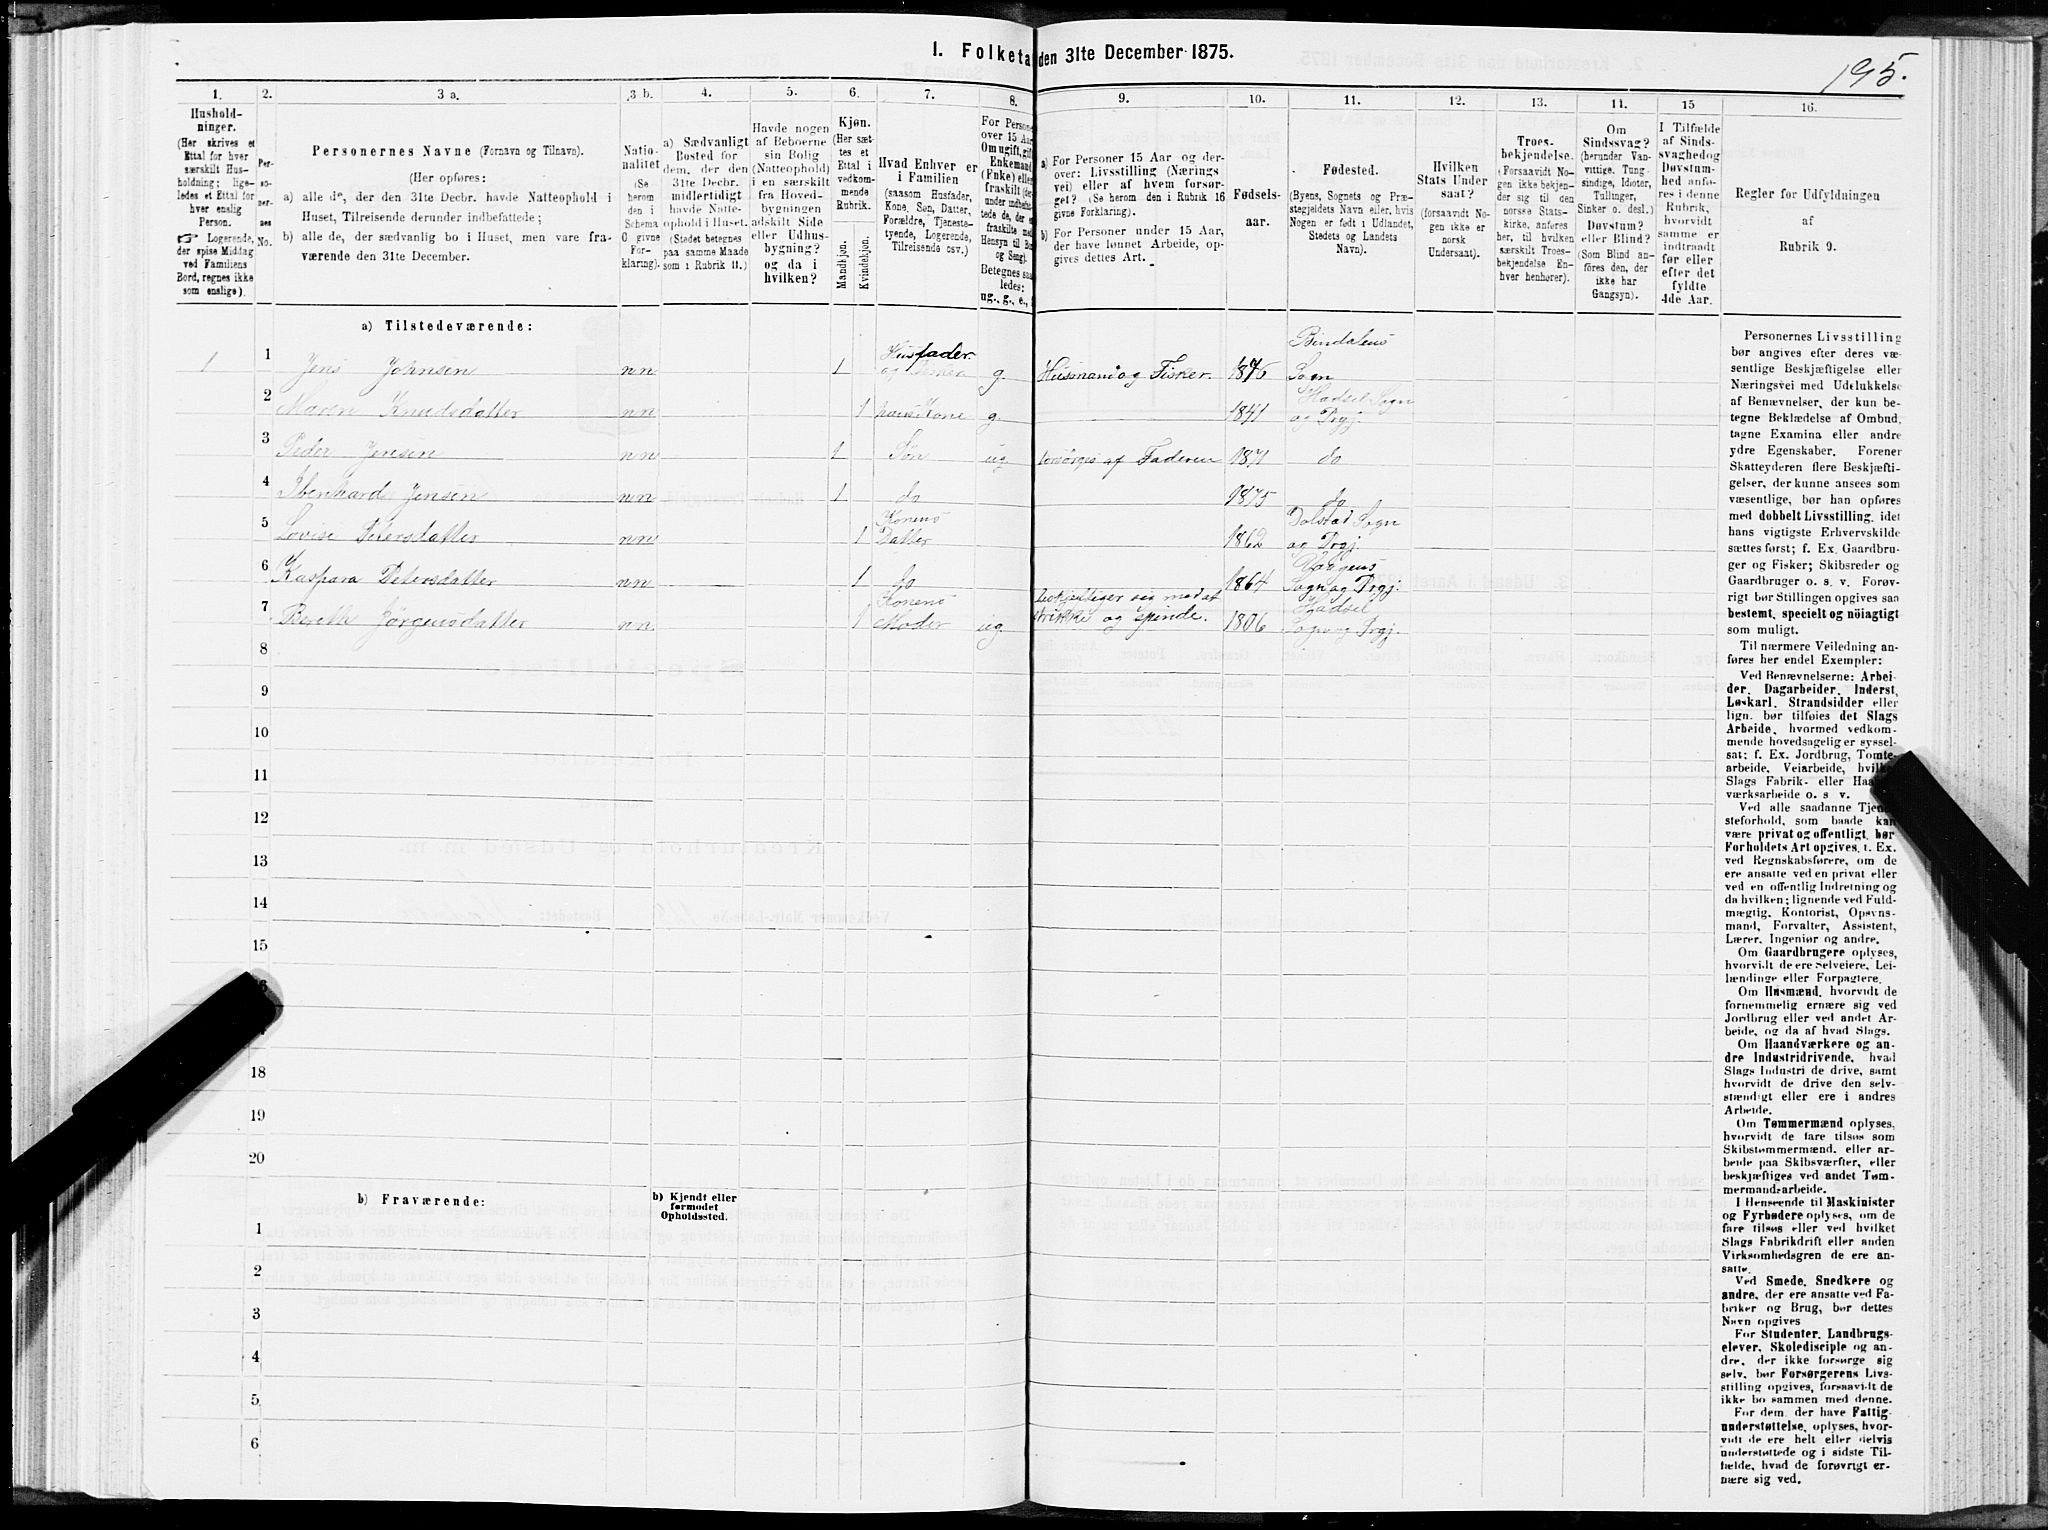 I. Folketa den 31te December 1875.
195.
1.
Hushold-
ninger.
(Her skrives et
Ettal for hver
særskilt Hus-
holdning; lige-
ledes et Ettal for
hver enslig
Person.
☞ Logerende,
der spise Middag
ved Familiens
Bord, regnes ikke
som enslige).
2.
Per-
so-
ner-
nes
No.
3 a.
Personernes Navne (Fornavn og Tilnavn).
(Her opføres:
a) alle de, der den 31te Decbr. havde Natteophold i
Huset, Tilreisende derunder indbefattede;
b) alle de, der sædvanlig bo i Huset, men vare fra-
værende den 31te December.
3 b.
Natio-
nalitet
(Se
herom
den i
Schema
O givne
For-
klaring).
4.
a) Sædvanligt
Bosted for
dem, der den
31te Decbr.
midlertidigt
havde Natte-
ophold i Huset.
(Stedet betegnes
paa samme Maade
som i Rubrik 11.)
5.
Havde nogen
af Beboerne
sin Bolig
(Natteophold)
i en særskilt
fra Hoved-
bygningen
adskilt Side
eller Udhus-
bygning?
og da i
hvilken?
6.
Kjøn.
(Her sæt-
tes et
Ettal i
vedkom-
mende
Rubrik.
Mandkjøn.
Kvindekjøn.
7.
Hvad Enhver er
i Familien
(saasom Husfader,
Kone, Søn, Datter,
Forældre, Tjeneste-
tyende, Logerende,
Tilreisende osv.).
8.
For Persone
over 15 Aar
Om ugift, gift
Enkemand
(Enke) eller
fraskilt (der-
under indbefat-
tede de, der er
fraskilte med
Hensyn til Bo
og Seng).
Betegnes saa
ledes:
ug., g., e.,
9.
a) For Personer 15 Aar og der-
over: Livsstilling (Nærings
vei) eller af hvem forsør-
get? (Se herom den i Rubrik 16
givne Forklaring).
b) For Personer under 15 Aar,
der have lønnet Arbeide, op-
gives dettes Art.
10.
Fødsels-
aar.
11.
Fødested.
(Byens, Sognets og Præ-
stegjeldets Navn eller, hvis
Nogen er født i Udlandet,
Stedets og Landets
Navn).
12.
Hvilken
Stats Under
saat?
(forsaavidt No-
gen ikke er
norsk
Undersaat).
13.
Troes-
bekjendelse.
(Forsaavidt No-
gen ikke bekjen-
der sig til den
norske Stats-
kirke, anføres
her, til hvilken
særskilt Troes-
bekjendelse En-
hver henhører).
14.
Om
Sindssvag?
(herunder Van-
vittige, Tung-
sindige, Idioter,
Tullinger,
Sinker o. desl.)
Døvstum?
eller Blind?
(Som Blind an-
føres den, der
ikke har
Gangsyn).
15
I Tilfælde
af Sinds-
svaghed og
Døvstum-
hed anfø-
res i denne
Rubrik,
hvorvidt
samme er
indtraadt
før eller
efter det
fyldte
4de Aar.
16.
Regler for Udfyldningen
af
Rubrik 9.
a) Tilstedeværende:
1 1 Jens Johnsen nn 1 Husfader g. Husmand og Fisker. Bindalens Sogn
2 Maren Knudsdatter nn 1 hans Kone g. 1841 Hadsel Sogn og Prgj.
3 Peder Jensen nn 1 Søn ug. forsørges af Faderen 1871 do
4 Iberhard Jensen nn 1 do 1875 do
5 Lovise Petersdatter nn 1 Konens Datter 1862 Dolstad Sogn og Prgj.
6 Kaspara Petersdatter nn 1 do 1864 Vaagens Sogn og Prgj.
7 Bereth Jørgensdatter nn 1 Konens Moder ug. beskjæftiger sig med at strikke og spinde. 1806 Hadsel Sogn og Prgj.
8
9
10
11
12
13
14
15
6
18
19
20
b) Fraværende:
b) Kjendt eller
formodet
Opholdssted.
1
2
3
4
5
6
Personernes Livsstilling
bør angives efter deres væ-
sentlige Beskjæftigelse eller
Næringsvei med Udelukkelse
af Benævnelser, der kun be-
tegne Beklædelse af Ombud,
tagne Examina eller andre
ydre Egenskaber. Forener
Skatteyderen flere Beskjæfti-
gelser, der kunne ansees som
væsentlige, bør han opføres
med dobbelt Livsstilling, idet
hans vigtigste Erhvervskilde
sættes først; f. Ex. Gaardbru-
ger og Fisker; Skibsreder og
Gaardbruger o. s. v. Forøv-
rigt bør Stillingen opgives saa
bestemt, specielt og nøiagtigt
som muligt.
Til nærmere Veiledning an-
føres her endel Exempler:
Ved Benævnelserne: Arbei-
der, Dagarbeider, Inderst,
Løskarl, Strandsidder eller
lign. bør tilføies det Slags
Arbeide, hvormed vedkom-
mende hovedsagelig er syssel-
sat; f. Ex. Jordbrug, Tomte-
arbeide, Veiarbeide, hvilke
Slags Fabrik- eller Haa
værksarbeide o. s. v.
Ved alle saadanne Tjene
steforhold, som baade kan
være privat og offentligt, bør
Forholdets Art opgives, f. Ex.
ved Regnskabsførere, om de
ere ansatte ved en privat eller
ved en offentlig Indretning og
da hvilken; lignende ved Fuld-
mægtig, Kontorist, Opsyns-
mand, Forvalter, Assistent,
Lærer, Ingeniør og andre.
Om Gaardbrugere oplyses,
hvorvidt de ere Selveiere, Lei-
lændinge eller Forpagtere.
Om Husmænd, hvorvidt de
fornemmelig ernære sig ved
Jordbrug eller ved andet Ar-
beide, og da af hvad Slags.
Om Haandværkere og an-
dre Industridrivende, hvad
Slags Industri de drive, samt
hvorvidt de drive den selv-
stændigt eller ere i andres
Arbeide.
Om Tømmermænd oplyses,
hvorvidt de fare tilsøs som
Skibstømmermænd, eller ar-
beide paa Skibsværfter, eller
beskjæftiges ved andet Tøm-
mermandsarbeide.
I Henseende til Maskinister
og Fyrbødere oplyses, om de
fare tilsøs eller ved hvilket
Slags Fabrikdrift eller anden
Virksomhedsgren de ere an-
satte.
Ved Smede, Snedkere og
andre, der ere ansatte ved Fa-
briker og Brug, bør dettes
Navn opgives
For Studenter, Landbrugs-
elever, Skoledisciple og an-
dre, der ikke forsørge sig
selv, bør Forsørgerens Livs-
stilling opgives, forsaavidt de
ikke bo sammen med denne.
For dem, der have Fattig-
understøttelse, oplyses, hvor-
vidt de ere helt eller delvis
understøttede og i sidste Til-
fælde, hvad de forøvrigt er-
nære sig ved.